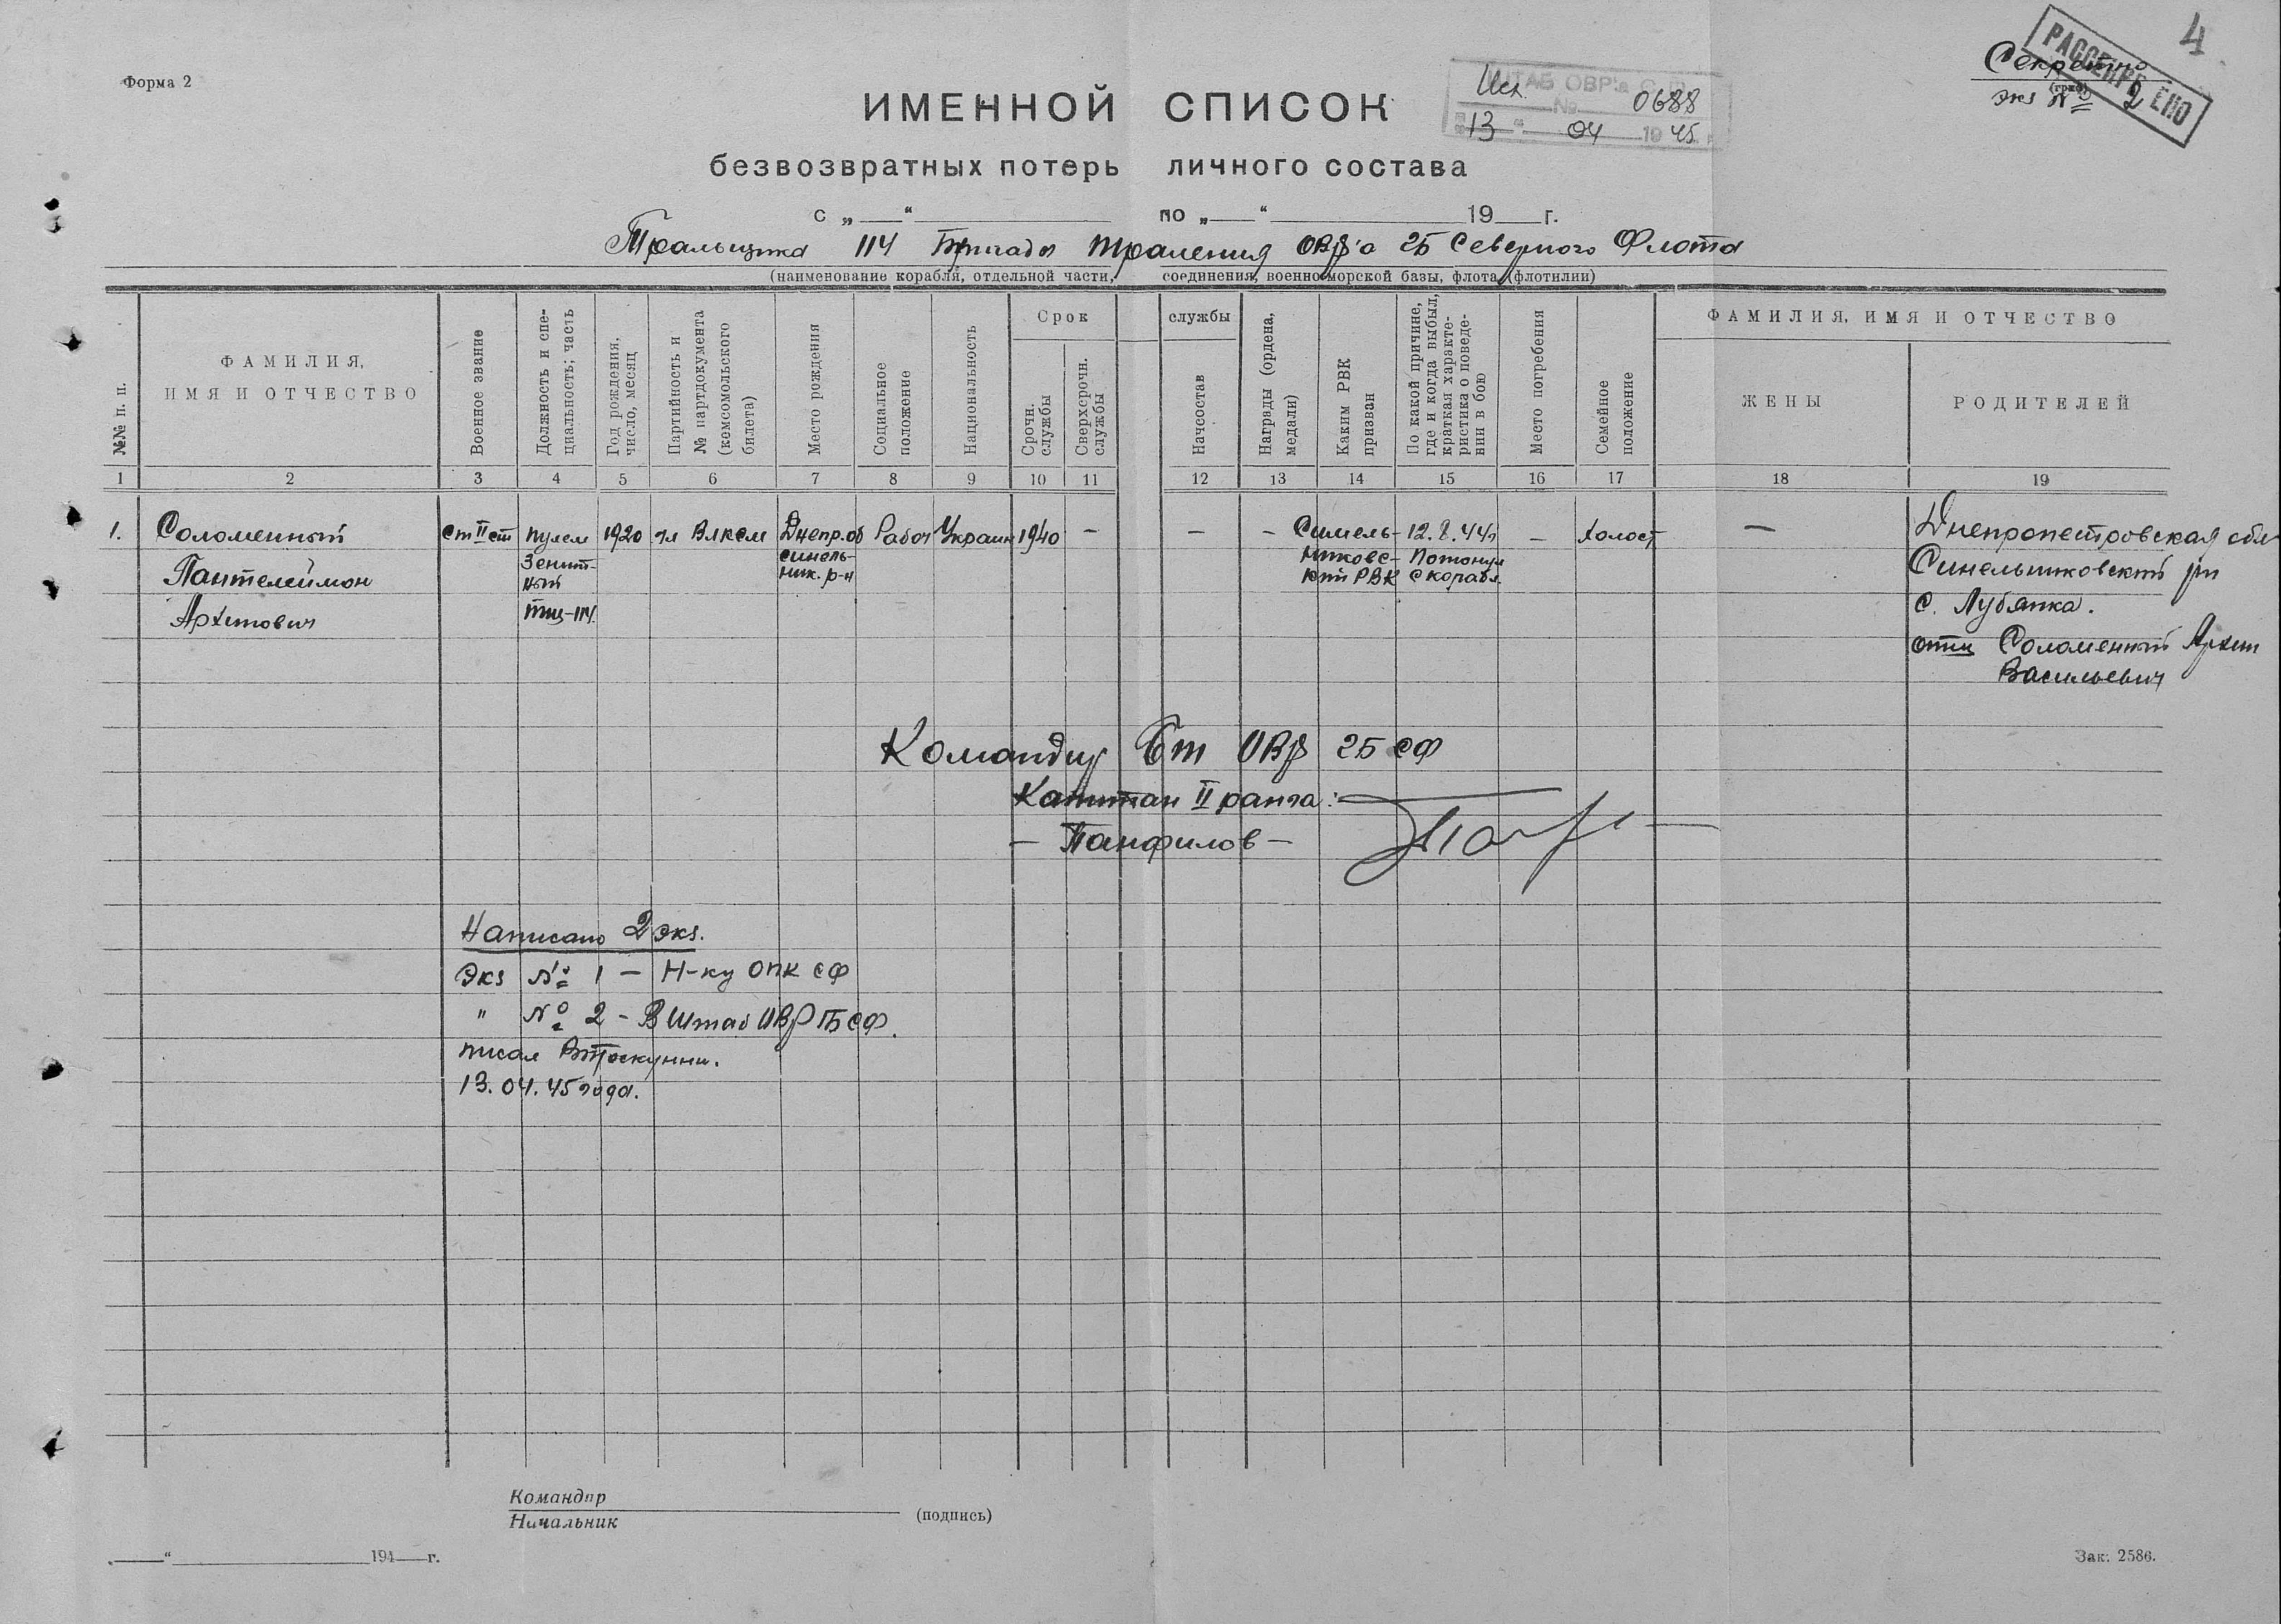 4
РАССЕКРЕЧЕНО
Секретно
(гриф)
экз № 2
Форма 2
ШТАБ ОВР'а
Исх. № 0688
13 " 04 1945 г.
ИМЕННОЙ СПИСОК
безвозвратных потерь личного состава
с „ “ по „ “ 19 г.
Тральщика 114 Бригады траления ОВР'а ГБ Северного Флота
(наименование корабля, отдельной части, соединения, военно-морской базы, флота (флотилии)
№№ п. п.
ФАМИЛИЯ,
ИМЯ И ОТЧЕСТВО
Военное звание
Должность и спе-
циальность; часть
Год рождения,
число, месяц
Партийность и
№ партдокумента
(комсомольского
билета)
Место рождения
Социальное
положение
Национальность
Срок службы
Срочн.
службы
Сверхсрочн.
службы
Начсостав
Награды (ордена,
медали)
Каким РВК
призван
По какой причине,
где и когда выбыл,
краткая характе-
ристика о поведе-
нии в бою
Место погребения
Семейное
положение
ФАМИЛИЯ, ИМЯ И ОТЧЕСТВО
ЖЕНЫ
РОДИТЕЛЕЙ
1 2 3 4 5 6 7 8 9 10 11 12 13 14 15 16 17 18 19
1.
Соломенный
Пантелеймон
Архипович
Ст II ст
пулем
Зенит-
ный
ТЩ-114.
1920
чл ВЛКСМ
Днепр.об
синель-
ник. р-н
Рабоч
Украин
1940
—
—
—
Синель-
никовс-
кий РВК
12.8.44г
Потонул
с корабл.
—
Холост
—
Днепропетровская обл
Синельниковский рн
с. Лубянка.
отец Соломенный Архип
Васильевич
Командир Бт ОВР ГБ СФ
Капитан II ранга:
— Панфилов —
Написано 2 экз.
Экз № 1 — Н-ку ОПК СФ
" № 2 - В Штаб ОВР ГБ СФ.
писал
13.04.45 года.
Командир
Начальник
(подпись)
„ “ 194 г.
Зак. 2586.